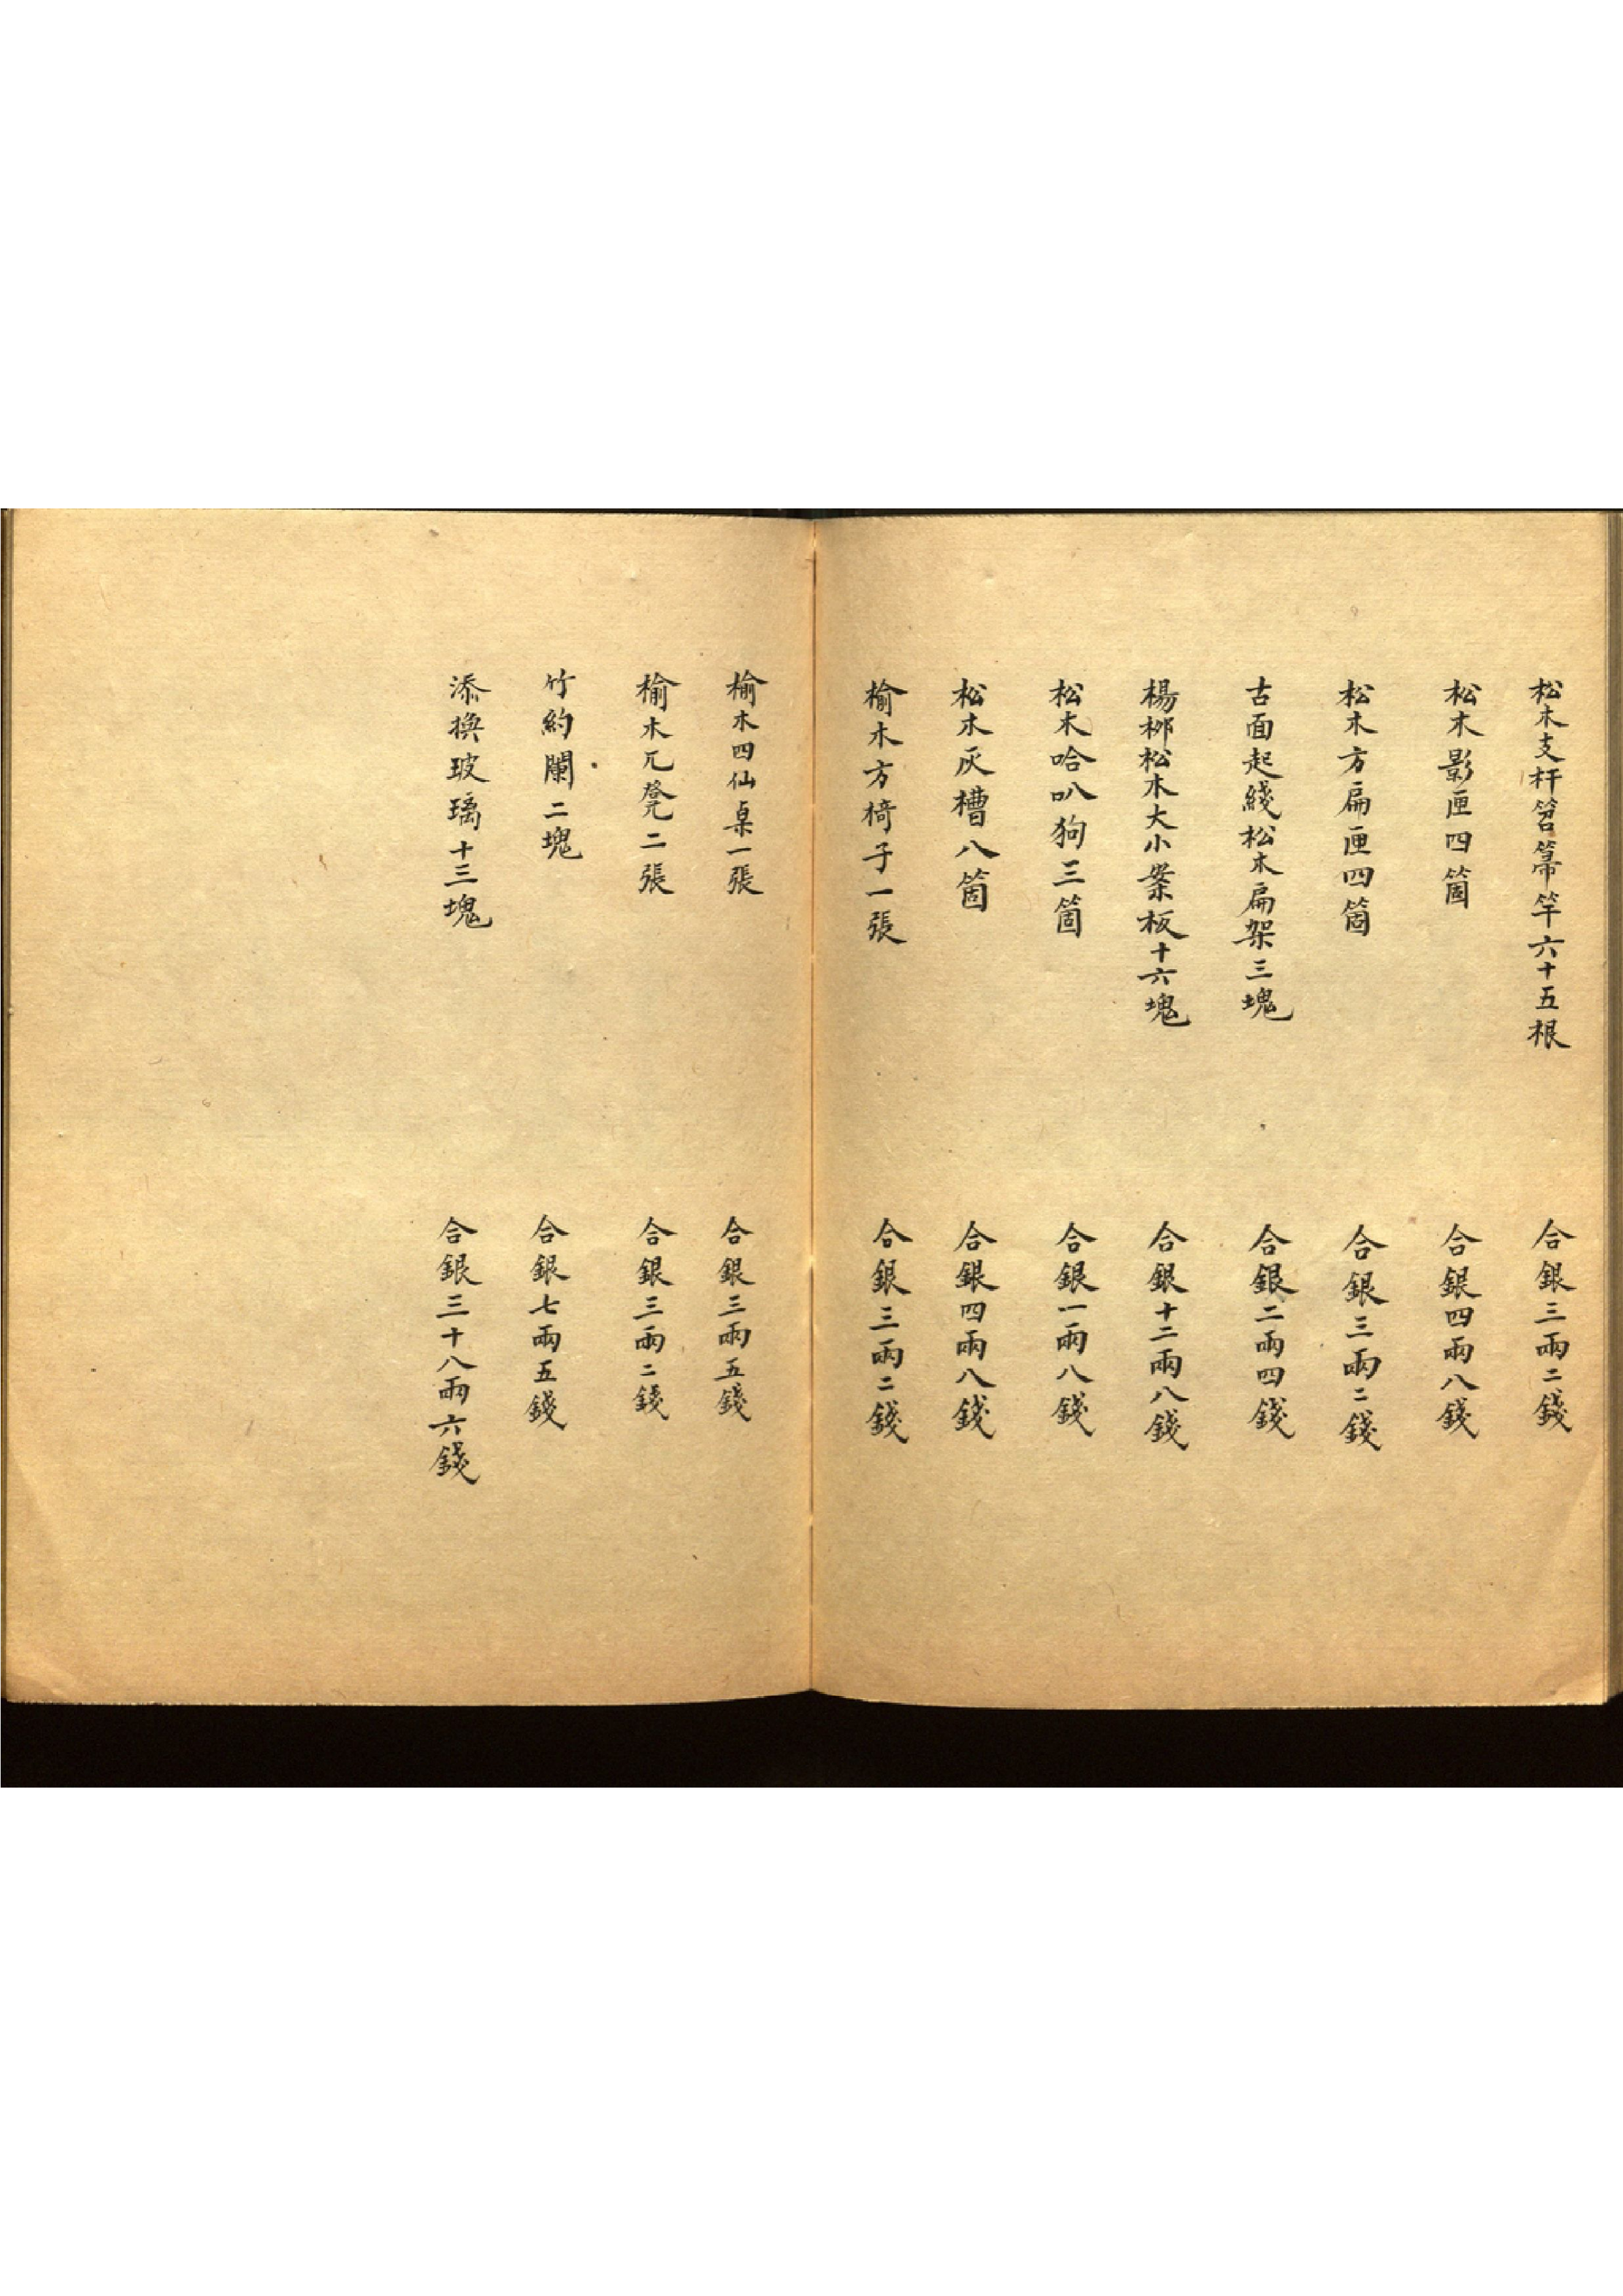 松木支杆笤箒竿六十五根　合銀三兩二錢
松木影匣四箇　合銀四兩八錢
松木方扁匣四箇　合銀三兩二錢
古面起綫松木扁架三塊　合銀二兩四錢
楊栁松木大小案板十六塊　合銀十二兩八錢
松木哈叭狗三箇　合銀一兩八錢
松木灰槽八箇　合銀四兩八錢
榆木方椅子一張　合銀三兩二錢
榆木四仙桌一張　合銀三兩五錢
榆木兀凳二張　合銀三兩二錢
竹約闌二塊　合銀七兩五錢
添換玻璃十三塊　合銀三十八兩六錢